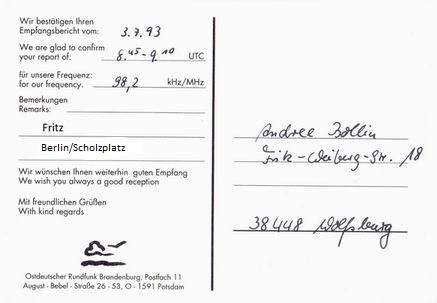 Wir bestätigen Ihren
Empfangsbericht vom: 3.7.93
We are glad to confirm
your report of: 8.45-9.10 UTC
für unsere Frequenz:
for our frequency. 98,2 kHz/MHz
Bemerkungen
Remarks:
Fritz
Berlin/Scholzplatz
Wir wünschen Ihnen weiterhin guten Empfang
We wish you always a good reception
Mit freundlichen Grüßen
With kind regards
Ostdeutscher Rundfunk Brandenburg, Postfach 11
August - Bebel - Straße 26 - 53, O - 1591 Potsdam
Andree Bollin
Fritz-Weiberg-Str. 18
38448 Wolfsburg